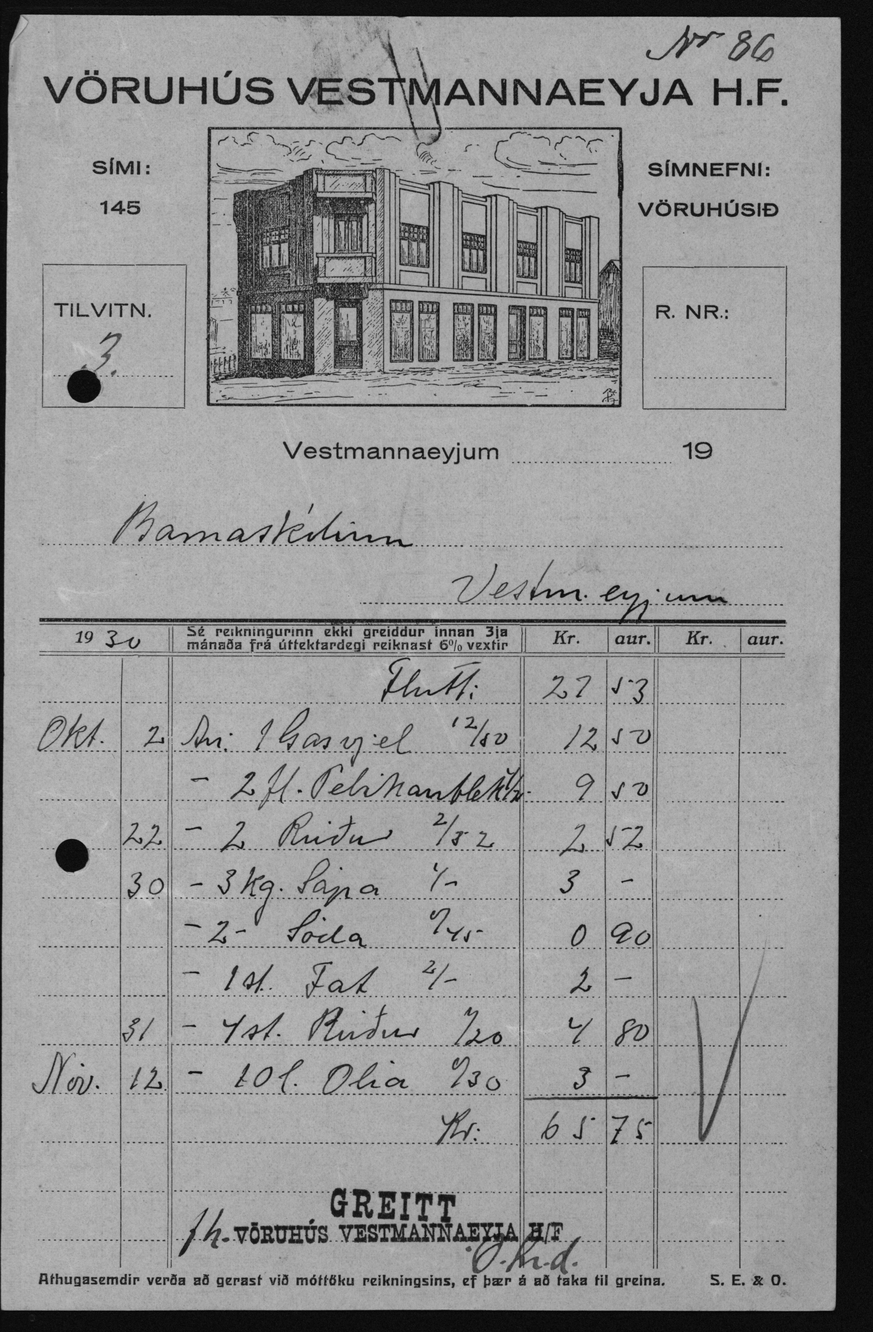 Nr 86
VÖRUHÚS VESTMANNAEYJA H.F.
SÍMI:
145
SÍMNEFNI:
VÖRUHÚSIÐ
TILVITN.
3.
R. NR.:
Vestmannaeyjum 19
Barnaskólinn
Vestm.eyjum
1930 Sé reikningurinn ekki greiddur innan 3ja mánaða frá úttektardegi reiknast 6% vextir Kr. aur. Kr. aur.
Flutt: 27 53
Okt. 2 An: 1 Gasvjel 12/50 12 50
- 2 fl. Pelikanblek 9 50
22 - 2 Rúður 2/52 2 52
30 - 3 kg. Sápa 1/- 3 -
- 2 - Sóda 0/45 0 90
- 1 st. Fat 2/- 2 -
31 - 4 st. Rúður 1/20 4 80
Nóv. 12 - 10 l. Olia 0/30 3 -
Kr: 65 75
GREITT
fh. VÖRUHÚS VESTMANNAEYJA H/F
Athugasemdir verða að gerast við móttöku reikningsins, ef þær á að taka til greina. S. E. & O.